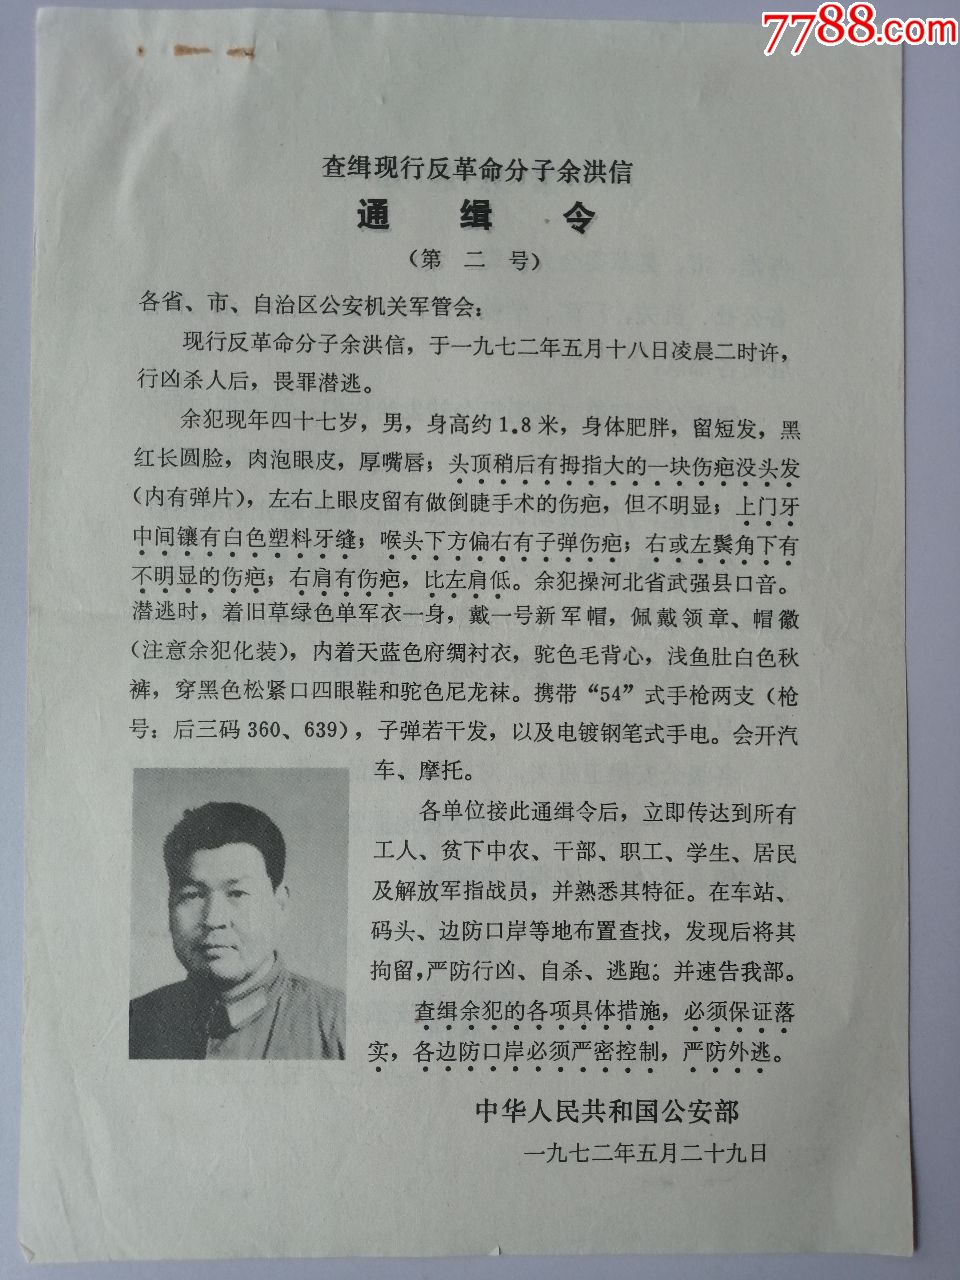 7788.com
查缉现行反革命分子余洪信
通缉令
（第二号）
各省、市、自治区公安机关军管会：
现行反革命分子余洪信，于一九七二年五月十八日凌晨二时许，
行凶杀人后，畏罪潜逃。
余犯现年四十七岁，男，身高约1.8米，身体肥胖，留短发，黑
红长圆脸，肉泡眼皮，厚嘴唇；头顶稍后有拇指大的一块伤疤没头发
（内有弹片），左右上眼皮留有做倒睫手术的伤疤，但不明显；上门牙
中间镶有白色塑料牙缝；喉头下方偏右有子弹伤疤；右或左鬓角下有
不明显的伤疤；右肩有伤疤，比左肩低。余犯操河北省武强县口音。
潜逃时，着旧草绿色单军衣一身，戴一号新军帽，佩戴领章、帽徽
（注意余犯化装），内着天蓝色府绸衬衣，驼色毛背心，浅鱼肚白色秋
裤，穿黑色松紧口四眼鞋和驼色尼龙袜。携带“54”式手枪两支（枪
号：后三码360、639），子弹若干发，以及电镀钢笔式手电。会开汽
车、摩托。
各单位接此通缉令后，立即传达到所有
工人、贫下中农、干部、职工、学生、居民
及解放军指战员，并熟悉其特征。在车站、
码头、边防口岸等地布置查找，发现后将其
拘留，严防行凶、自杀、逃跑。并速告我部。
查缉余犯的各项具体措施，必须保证落
实，各边防口岸必须严密控制，严防外逃。
中华人民共和国公安部
一九七二年五月二十九日